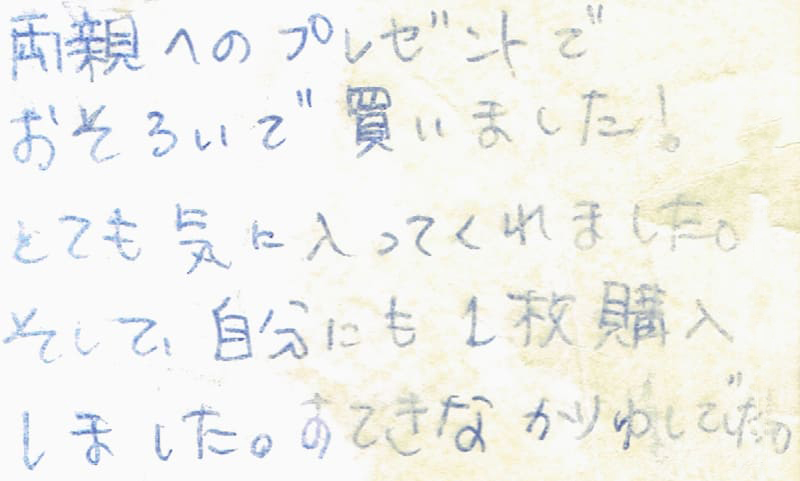 両親へのプレゼントで
おそろいで買いました!
とても気に入ってくれました。
そして、自分にも1枚購入
しました。すてきなかりゆしでした。